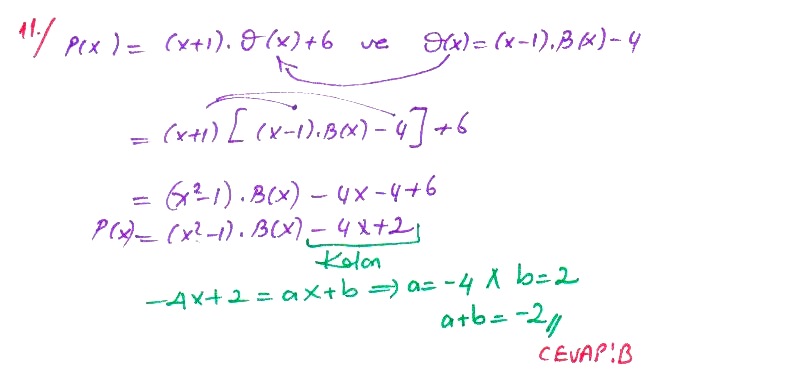 11./ P(x) = (x+1).Q(x)+6 ve Q(x)=(x-1).B(x)-4
= (x+1)[(x-1).B(x)-4]+6
= (x²-1).B(x) - 4x-4+6
P(x)= (x²-1).B(x) - 4x+2
Kalan
-4x+2 = ax+b ⇒ a=-4 ∧ b=2
a+b=-2//
CEVAP:B